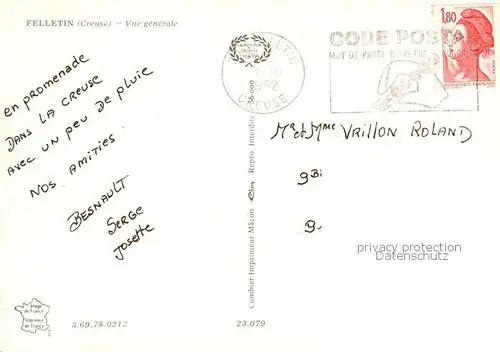 FELLETIN (Creuse) — Vue générale
en promenade
DANS LA CREUSE
AVEC UN PEU DE PLUIE
NOS AMITIES
BESNAULT
SERGE
Josette
CREUSE
CODE POSTAL
MOT DE PASSE DE VOTRE
1,80
Mr et Mme VRILLON ROLAND
9Bi
9-
privacy protection
Datenschutz
Combier Imprimeur Mâcon
Repro. Interdite
image
de France
Imprimée
en France
3.69.78.0212
23.079